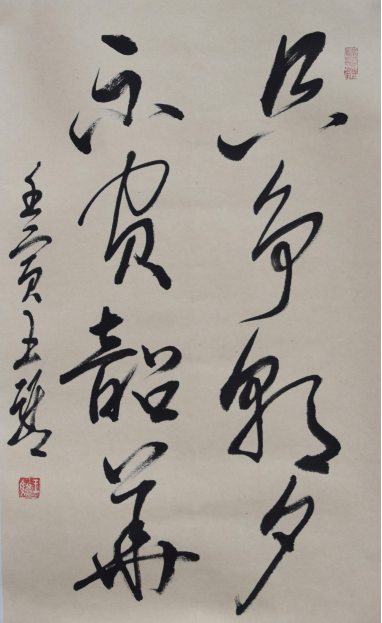 只争朝夕
不负韶華
壬寅王